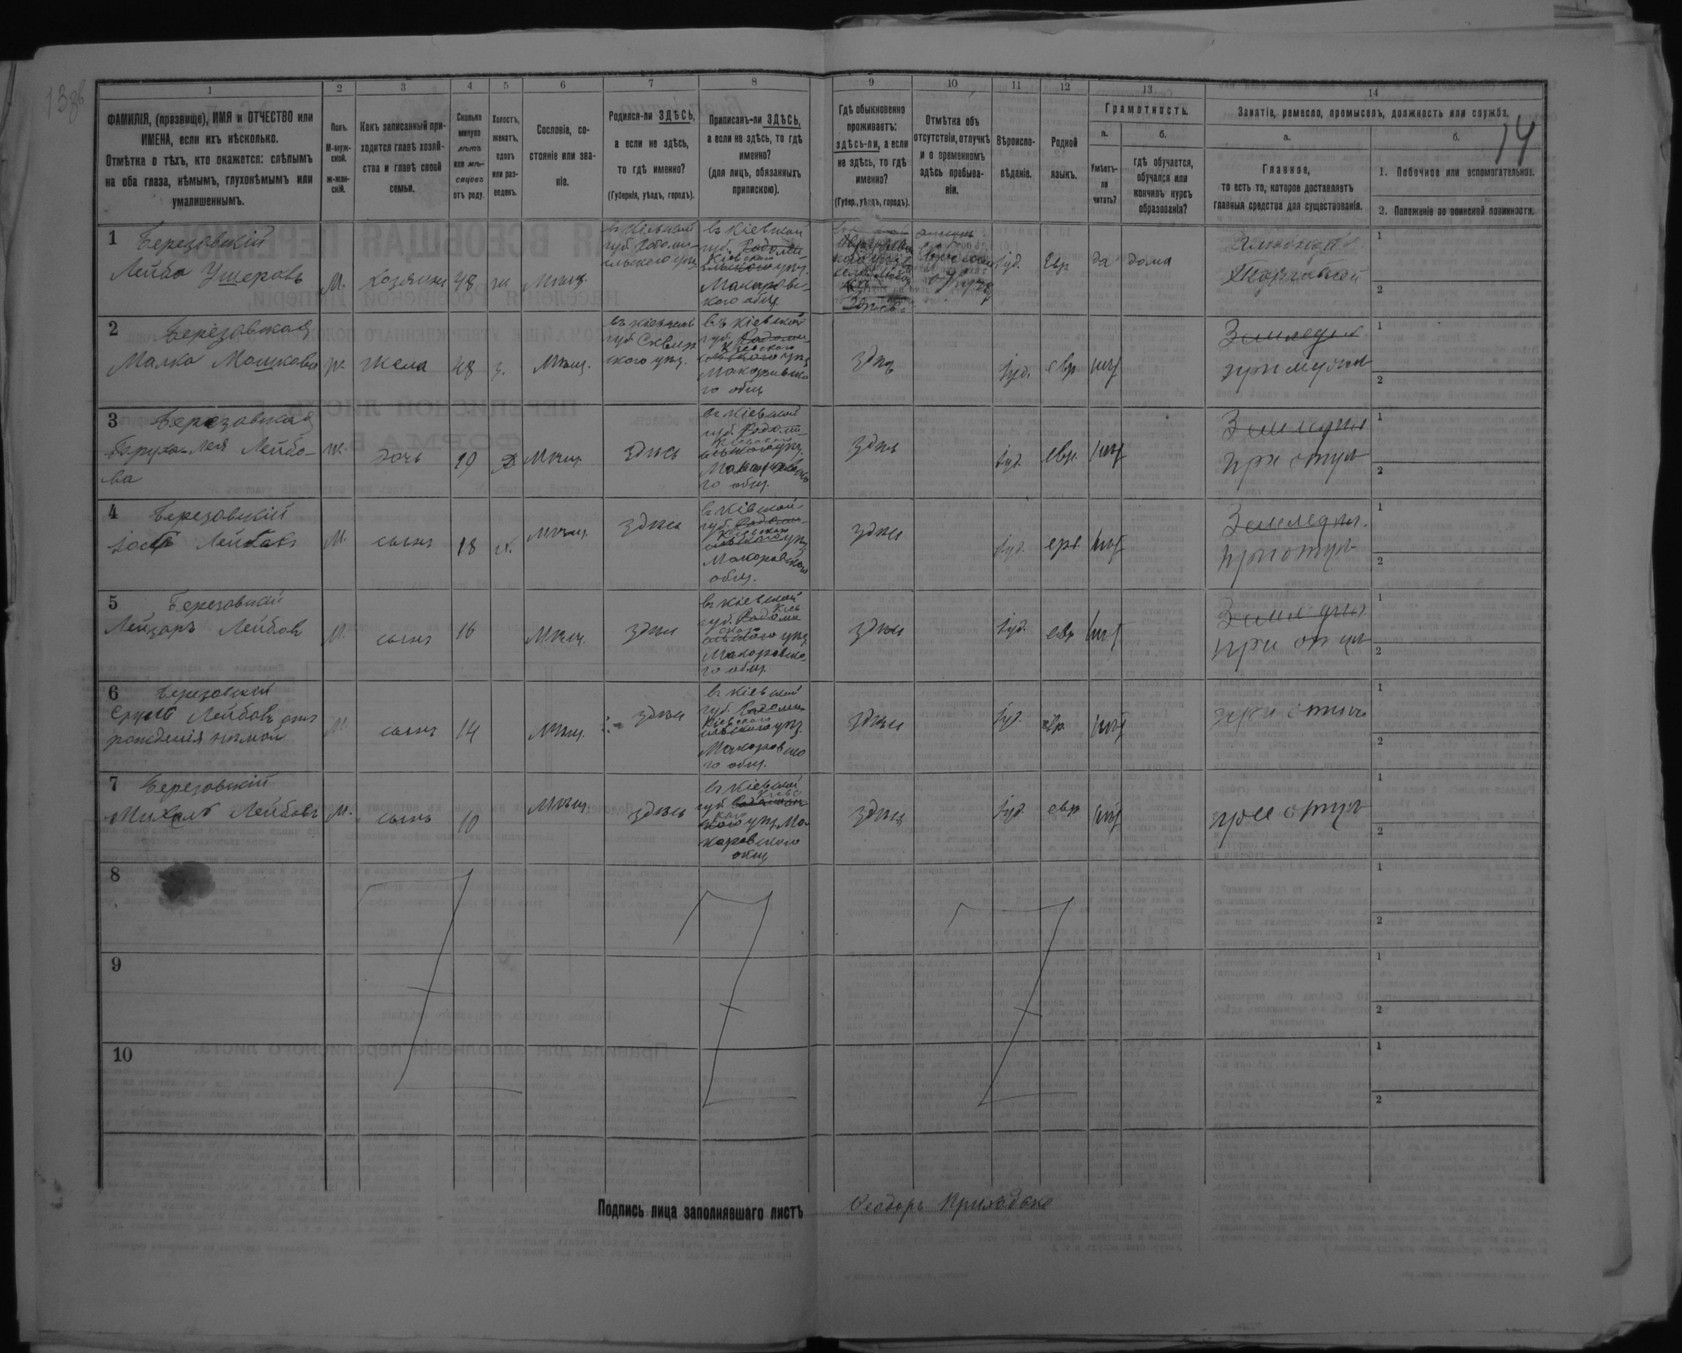 1386
14
1
2
3
4
5
6
7
8
9
10
11
12
13
14
ФАМИЛІЯ, (прозвище), ИМЯ и ОТЧЕСТВО или
ИМЕНА, если ихъ нѣсколько.
Отмѣтка о тѣхъ, кто окажется: слѣпымъ
на оба глаза, нѣмымъ, глухонѣмымъ или
умалишеннымъ.
Полъ.
М-муж-
ской.
ж-жен-
скій.
Какъ записанный при-
ходится главѣ хозяй-
ства и главѣ своей
семьи.
Сколько
минуло
лѣтъ
или мѣ-
сяцевъ
отъ роду.
Холостъ,
женатъ,
вдовъ
или раз-
веденъ.
Сословіе, со-
стояніе или зва-
ніе.
Родился-ли ЗДѢСЬ,
а если не здѣсь,
то гдѣ именно?
(Губернія, уѣздъ, городъ).
Приписанъ-ли ЗДѢСЬ,
а если не здѣсь, то гдѣ
именно?
(для лицъ, обязанныхъ
припискою).
Гдѣ обыкновенно
проживаетъ:
здѣсь-ли, а если
не здѣсь, то гдѣ
именно?
(Губер., уѣздъ, городъ).
Отмѣтка объ
отсутствіи, отлучкѣ
и о временномъ
здѣсь пребыва-
ніи.
Вѣроиспо-
вѣданіе.
Родной
языкъ.
Грамотность.
а.
Умѣетъ-
ли
читать?
б.
гдѣ обучается,
обучался или
кончилъ курсъ
образованія?
Занятіе, ремесло, промыселъ, должность или служба.
а.
Главное,
то есть то, которое доставляетъ
главныя средства для существованія.
б.
1. Побочное или вспомогательное.
2. Положеніе по воинской повинности.
1 Березовскій
Лейба Ушеровъ
М. хозяинъ 48 ж Мѣщ.
въ Кіевской
губ. Радомы-
сльскаго уѣз.
въ Кіевской
губ. Радомы-
Кіевскаго
уѣз.
Макаровс-
каго общ.
здѣсь
Іуд. Евр. да дома
Торговлей
1
2
2 Березовская
Малка Мошкова
ж. жена 48 з. Мѣщ.
въ Кіевской
губ Сквир
скаго уѣз.
въ Кіевской
губ. Радомы-
Кіевскаго
уѣз
Макаровска-
го общ
здѣсь
Іуд. евр. нѣт
при мужѣ
1
2
3 Березовская
Лея Лейбо-
ва
ж. дочь 19 д Мѣщ. здѣсь
въ Кіевской
губ. Радомы-
Кіевскаго
уѣз.
Макаровска-
го общ.
здѣсь
Іуд. евр. нѣт
при отцѣ
1
2
4 Березовскій
Лейбовъ
М. сынъ 18 х. Мѣщ. здѣсь
въ Кіевской
губ. Радомы-
Кіевскаго
уѣз
Макаровскаго
общ.
здѣсь
Іуд. евр. нѣт
при отцѣ
1
2
5 Березовскій
Лейзоръ Лейбовъ
М. сынъ 16 Мѣщ. здѣсь
въ Кіевской
губ. Радомы
уѣз
Макаровска-
го общ
здѣсь
Іуд. евр нѣт
при отцѣ
1
2
6 Березовскій
Сруль Лейбовъ отъ
рожденія нѣмой
М. сынъ 14 Мѣщ. здѣсь
въ Кіевской
губ. Радомы
Кіевскаго
уѣз.
Макаровска
го общ.
здѣсь
Іуд. евр нѣт
при отцѣ
1
2
7 Березовскій
Михель Лейбовъ
М. сынъ 10 Мѣщ. здѣсь
въ Кіевской
губ.
уѣз Ма-
каровскаго
общ
здѣсь
Іуд. евр нѣт
при отцѣ
1
2
8
1
2
9
1
2
10
1
2
Подпись лица заполнявшаго листъ Феодоръ Приходько